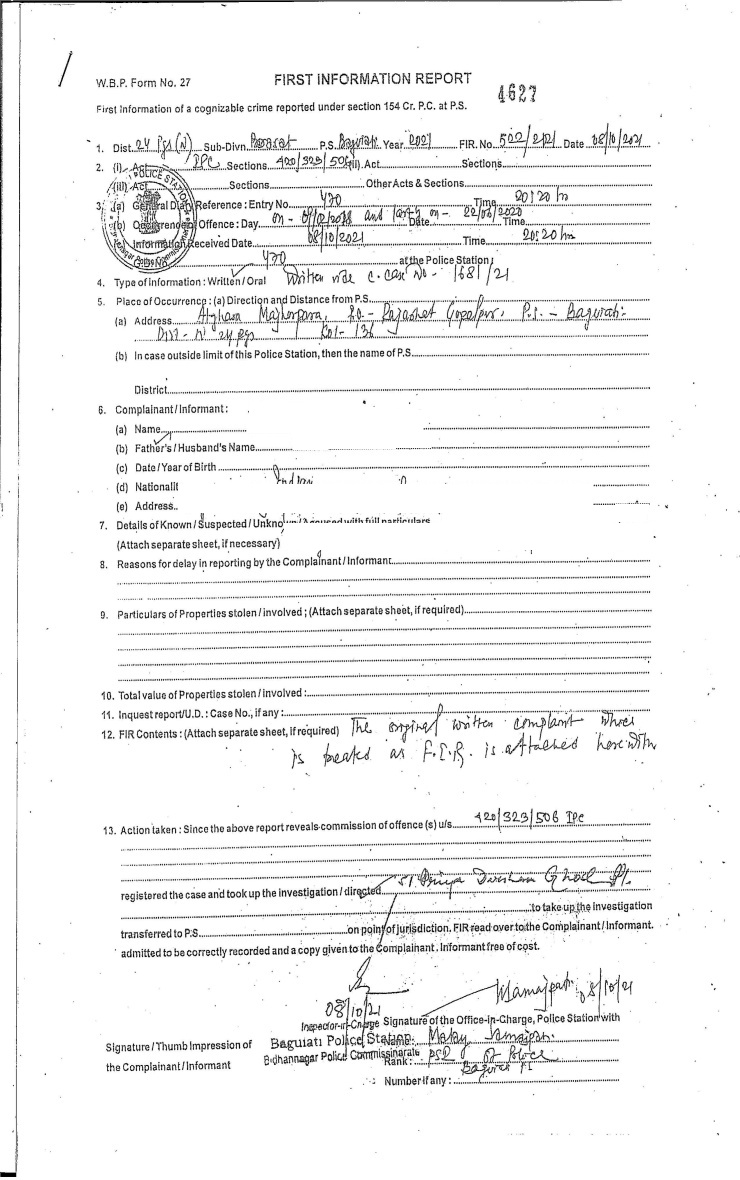 W.B.P. Form No. 27 FIRST INFORMATION REPORT 4627
First Information of a cognizable crime reported under section 154 Cr. P.C. at P.S.
1. Dist. 24 Pgs (N) Sub-Divn. Barasat P.S. Baguiati Year 2021 FIR. No. 502/2021 Date 08/10/2021
2. (i) Act IPC Sections 420/323/506 (ii) Act Sections
(iii) Act Sections Other Acts & Sections
3. (a) General Diary Reference: Entry No. 470 Time 20:20 hr
(b) Occurrence of Offence: Day on - and lastly on - 22/06/2020 Date Time
Information Received Date 08/10/2021 Time 20:20 hrs
470 at the Police Station
4. Type of information: Written / Oral Written vide C. Case No - 1681/21
5. Place of Occurrence: (a) Direction and Distance from P.S.
(a) Address Atghara Majherpara, P.O. - Rajarhat Gopalpur, P.S. - Baguiati
Dist - N 24 Pgs Kol - 136
(b) In case outside limit of this Police Station, then the name of P.S.
District
6. Complainant / Informant:
(a) Name
(b) Father's / Husband's Name
(c) Date / Year of Birth
(d) Nationalit
(e) Address..
7. Details of Known / Suspected / Unkno with full particulars
(Attach separate sheet, if necessary)
8. Reasons for delay in reporting by the Complainant / Informant
9. Particulars of Properties stolen / involved; (Attach separate sheet, if required)
10. Total value of Properties stolen / involved:
11. Inquest report/U.D.: Case No., if any:
12. FIR Contents: (Attach separate sheet, if required) The original written complaint which
is treated as F.I.R. is attached herewith
13. Action taken: Since the above report reveals commission of offence (s) u/s 420/323/506 IPC
registered the case and took up the investigation / directed SI Priya Darshan Ghosh
to take up the investigation
transferred to P.S. on point of jurisdiction. FIR read over to the Complainant / Informant.
admitted to be correctly recorded and a copy given to the Complainant. Informant free of cost.
08/10/21 08/10/21
Inspector-in-Charge Signature of the Office-in-Charge, Police Station with
Baguiati Police Station Name: Malay
Signature / Thumb Impression of Bidhannagar Police Commissinarate Rank: of Police
the Complainant / Informant Baguiati PS
Number if any: